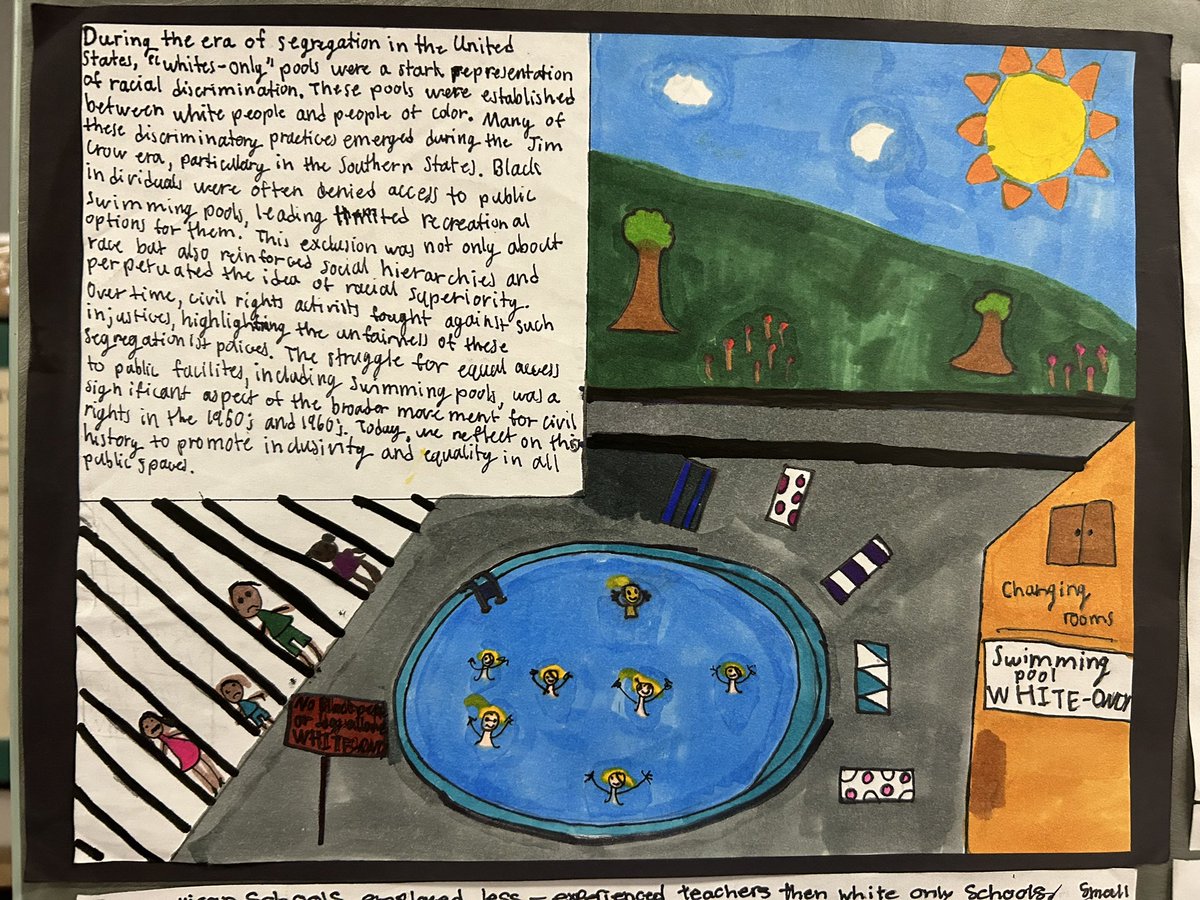 During the era of segregation in the United
States, "whites-only" pools were a stark representation
of racial discrimination. These pools were established
between white people and people of color. Many of
these discriminatory practices emerged during the Jim
Crow era, particulary in the Southern States. Black
individuals were often denied access to public
swimming pools, leading limited recreational
options for them. This exclusion was not only about
race but also reinforced social hierarchies and
perpetuated the idea of racial superiority.
Over time, civil rights activists fought against such
injustices, highlighting the unfairness of these
segregationist polices. The struggle for equal access
to public facilites, including swimming pools, was a
significant aspect of the broader movement for civil
rights in the 1950s and 1960s. Today, we reflect on this
history to promote inclusivity and equality in all
public spaces.
Changing
rooms
Swimming
pool
WHITE-ONLY
No Black
or
WHITE
Schools employed less - experienced teachers then white only Schools/ Small